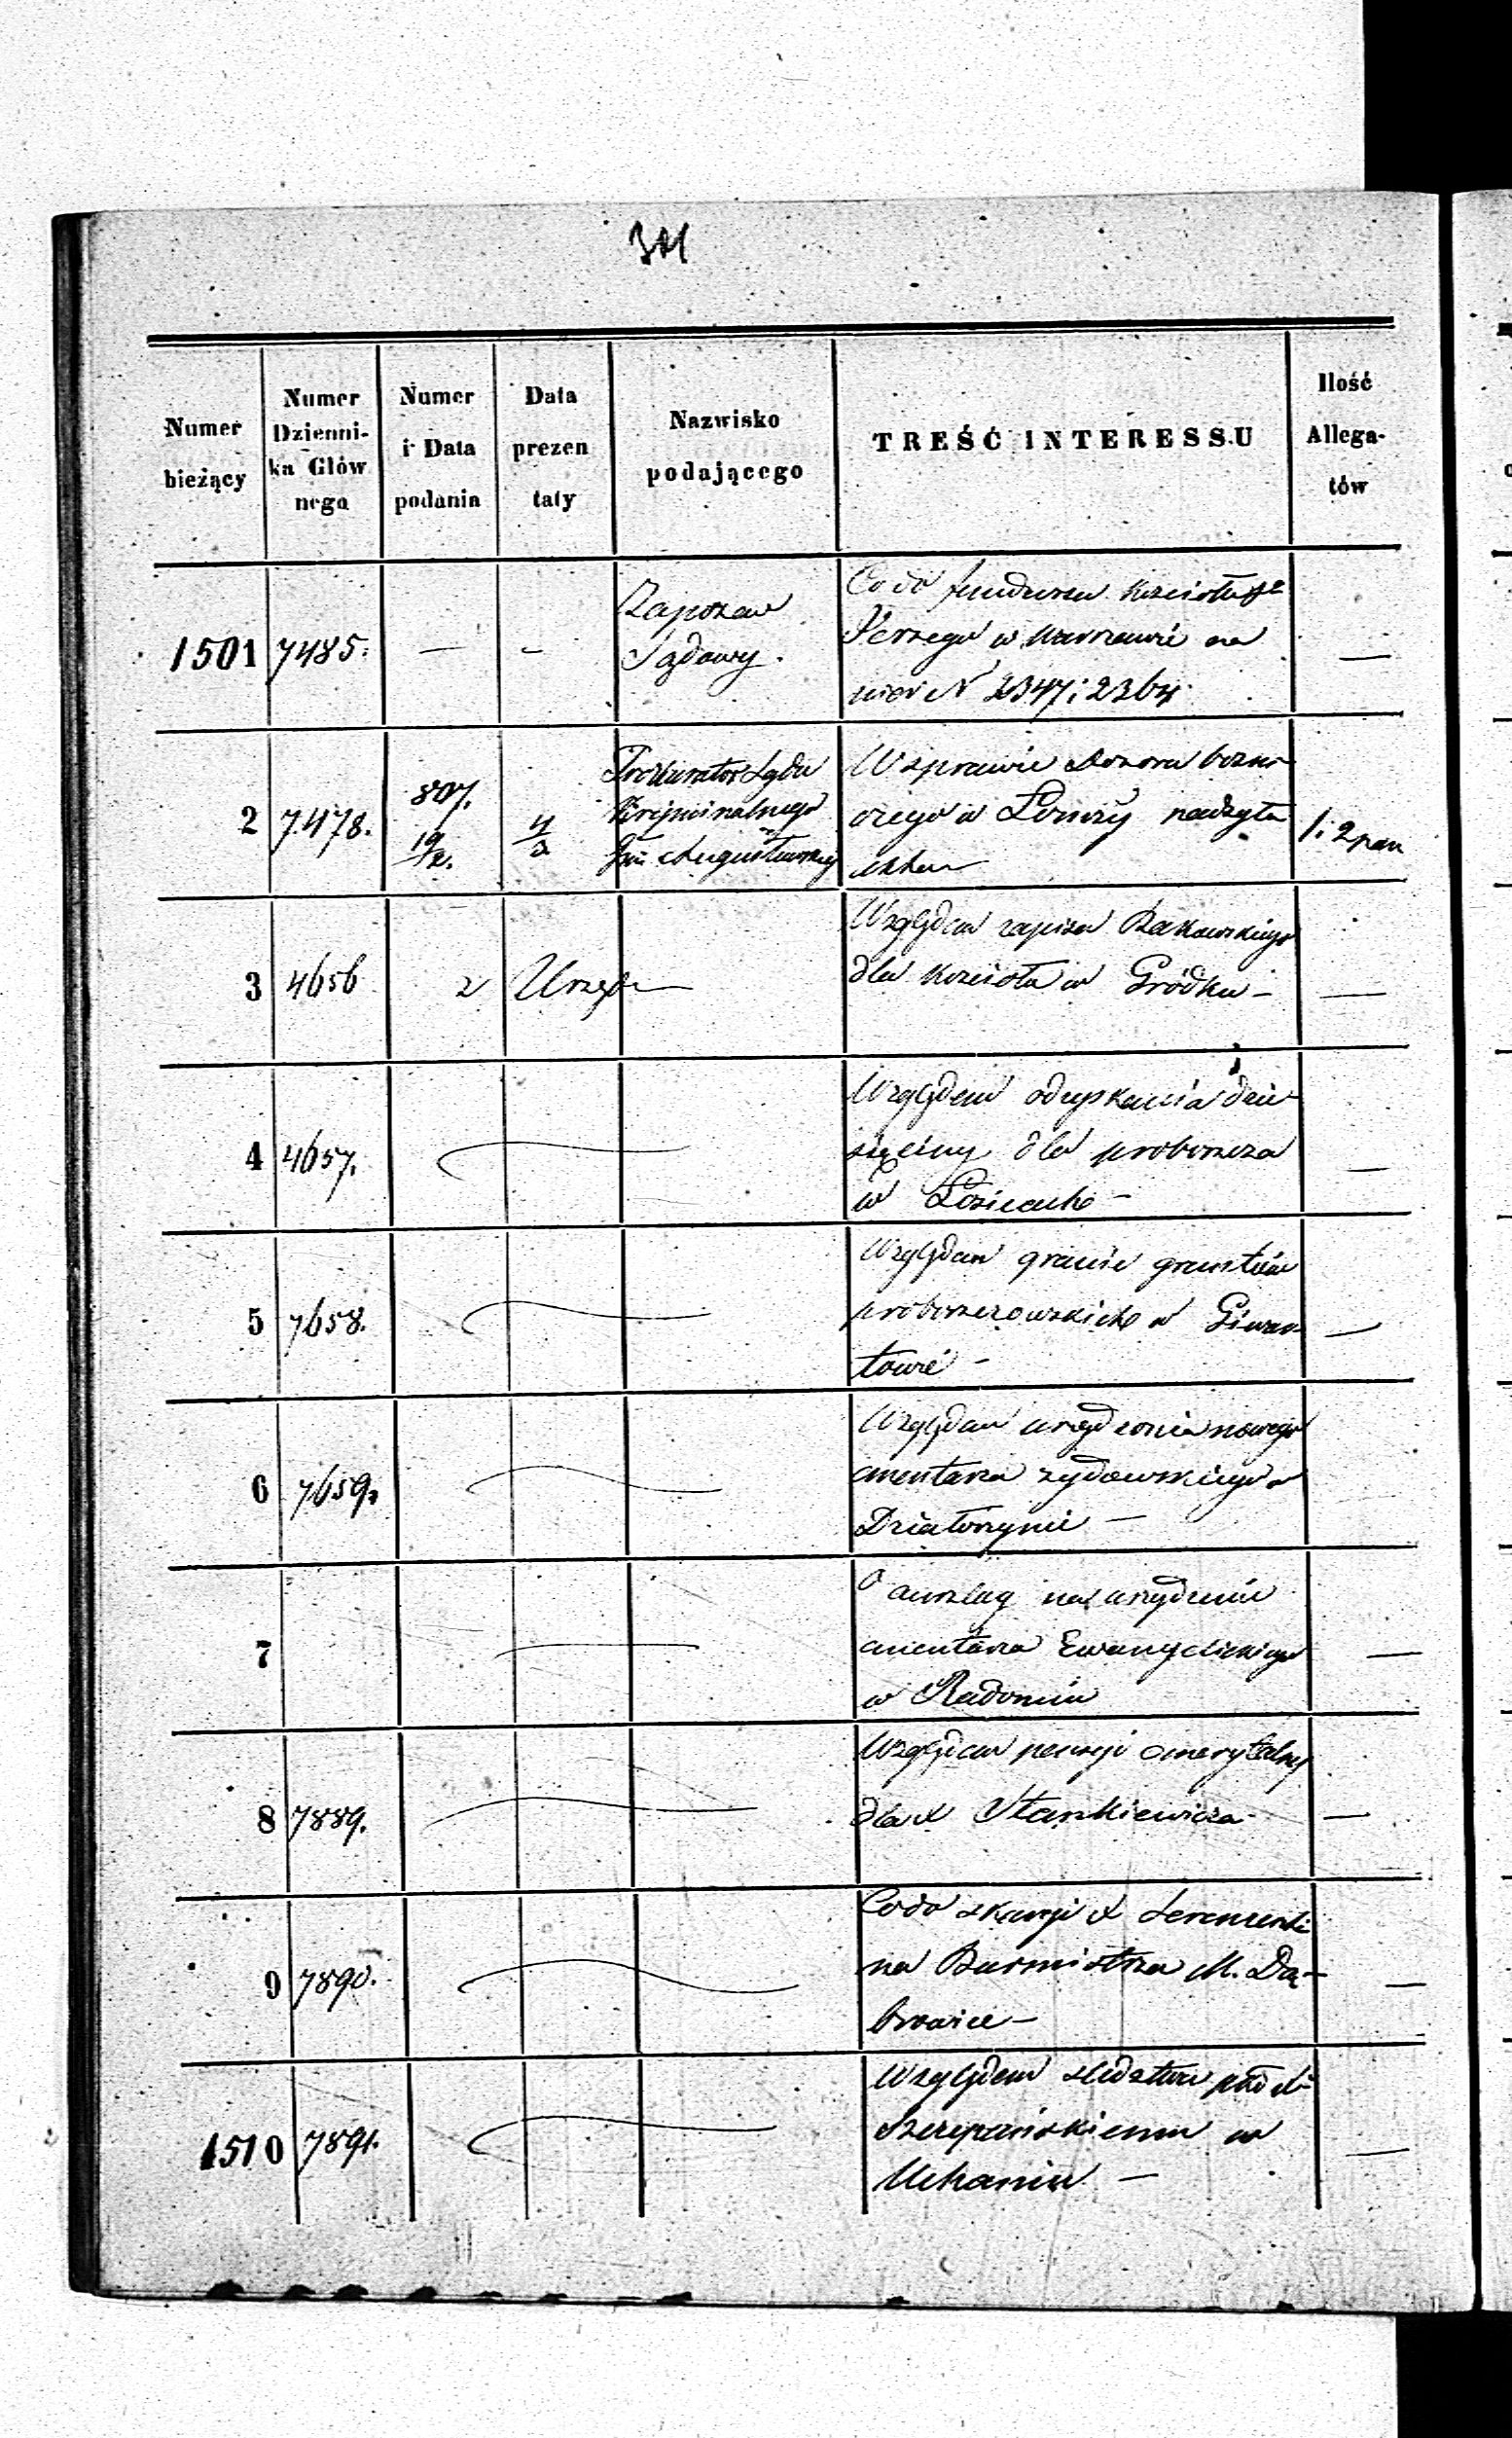 301
Numer bieżący | Numer Dzienni-ka Głów nego | Numer i Data podania | Data prezen taty | Nazwisko podającego | TREŚĆ INTERESSU | Ilość Allega-tów
1501 | 7485. | — | — | Zapozew
Sądowy. | Co do funduszu Kościoła Sgo
Jerzego w Warszawie na
N 2347 i 2364 | —
2 | 7478. | 807.
19/2. | 4/3 | Prokurator Sądu
Kryminalnego
Gub Augustowskiej | W sprawie Dozoru bożni-
czego w Łomży nadsyła
akta | 1 i 2 pau
3 | 4656 | z | Urzędu — | Względem zapisu Rakowskiego
dla Kościoła w Gródku — | —
4 | 4657. | Względem odzyskania dzie-
sięciny dla proboszcza
w Łosicach — | —
5 | 7658. | Względem granic gruntów
proboszczowskich w Giwar-
towie — | —
6 | 7659. | Względem urządzenia nowego
cmentarza żydowskiego w
Działoszynie —
7 | O anszlag na urządzenie
cmentarza Ewangelickiego
w Radomiu | —
8 | 7889. | Względem pensyi emerytalnej
dla X Stankiewicza | —
9 | 7890. | Co do skargi X
na Burmistrza M. Dą-
browice — | —
1510 | 7891. | Względem śledztwa
Szczepańskiemu w
Uchaniu — | —